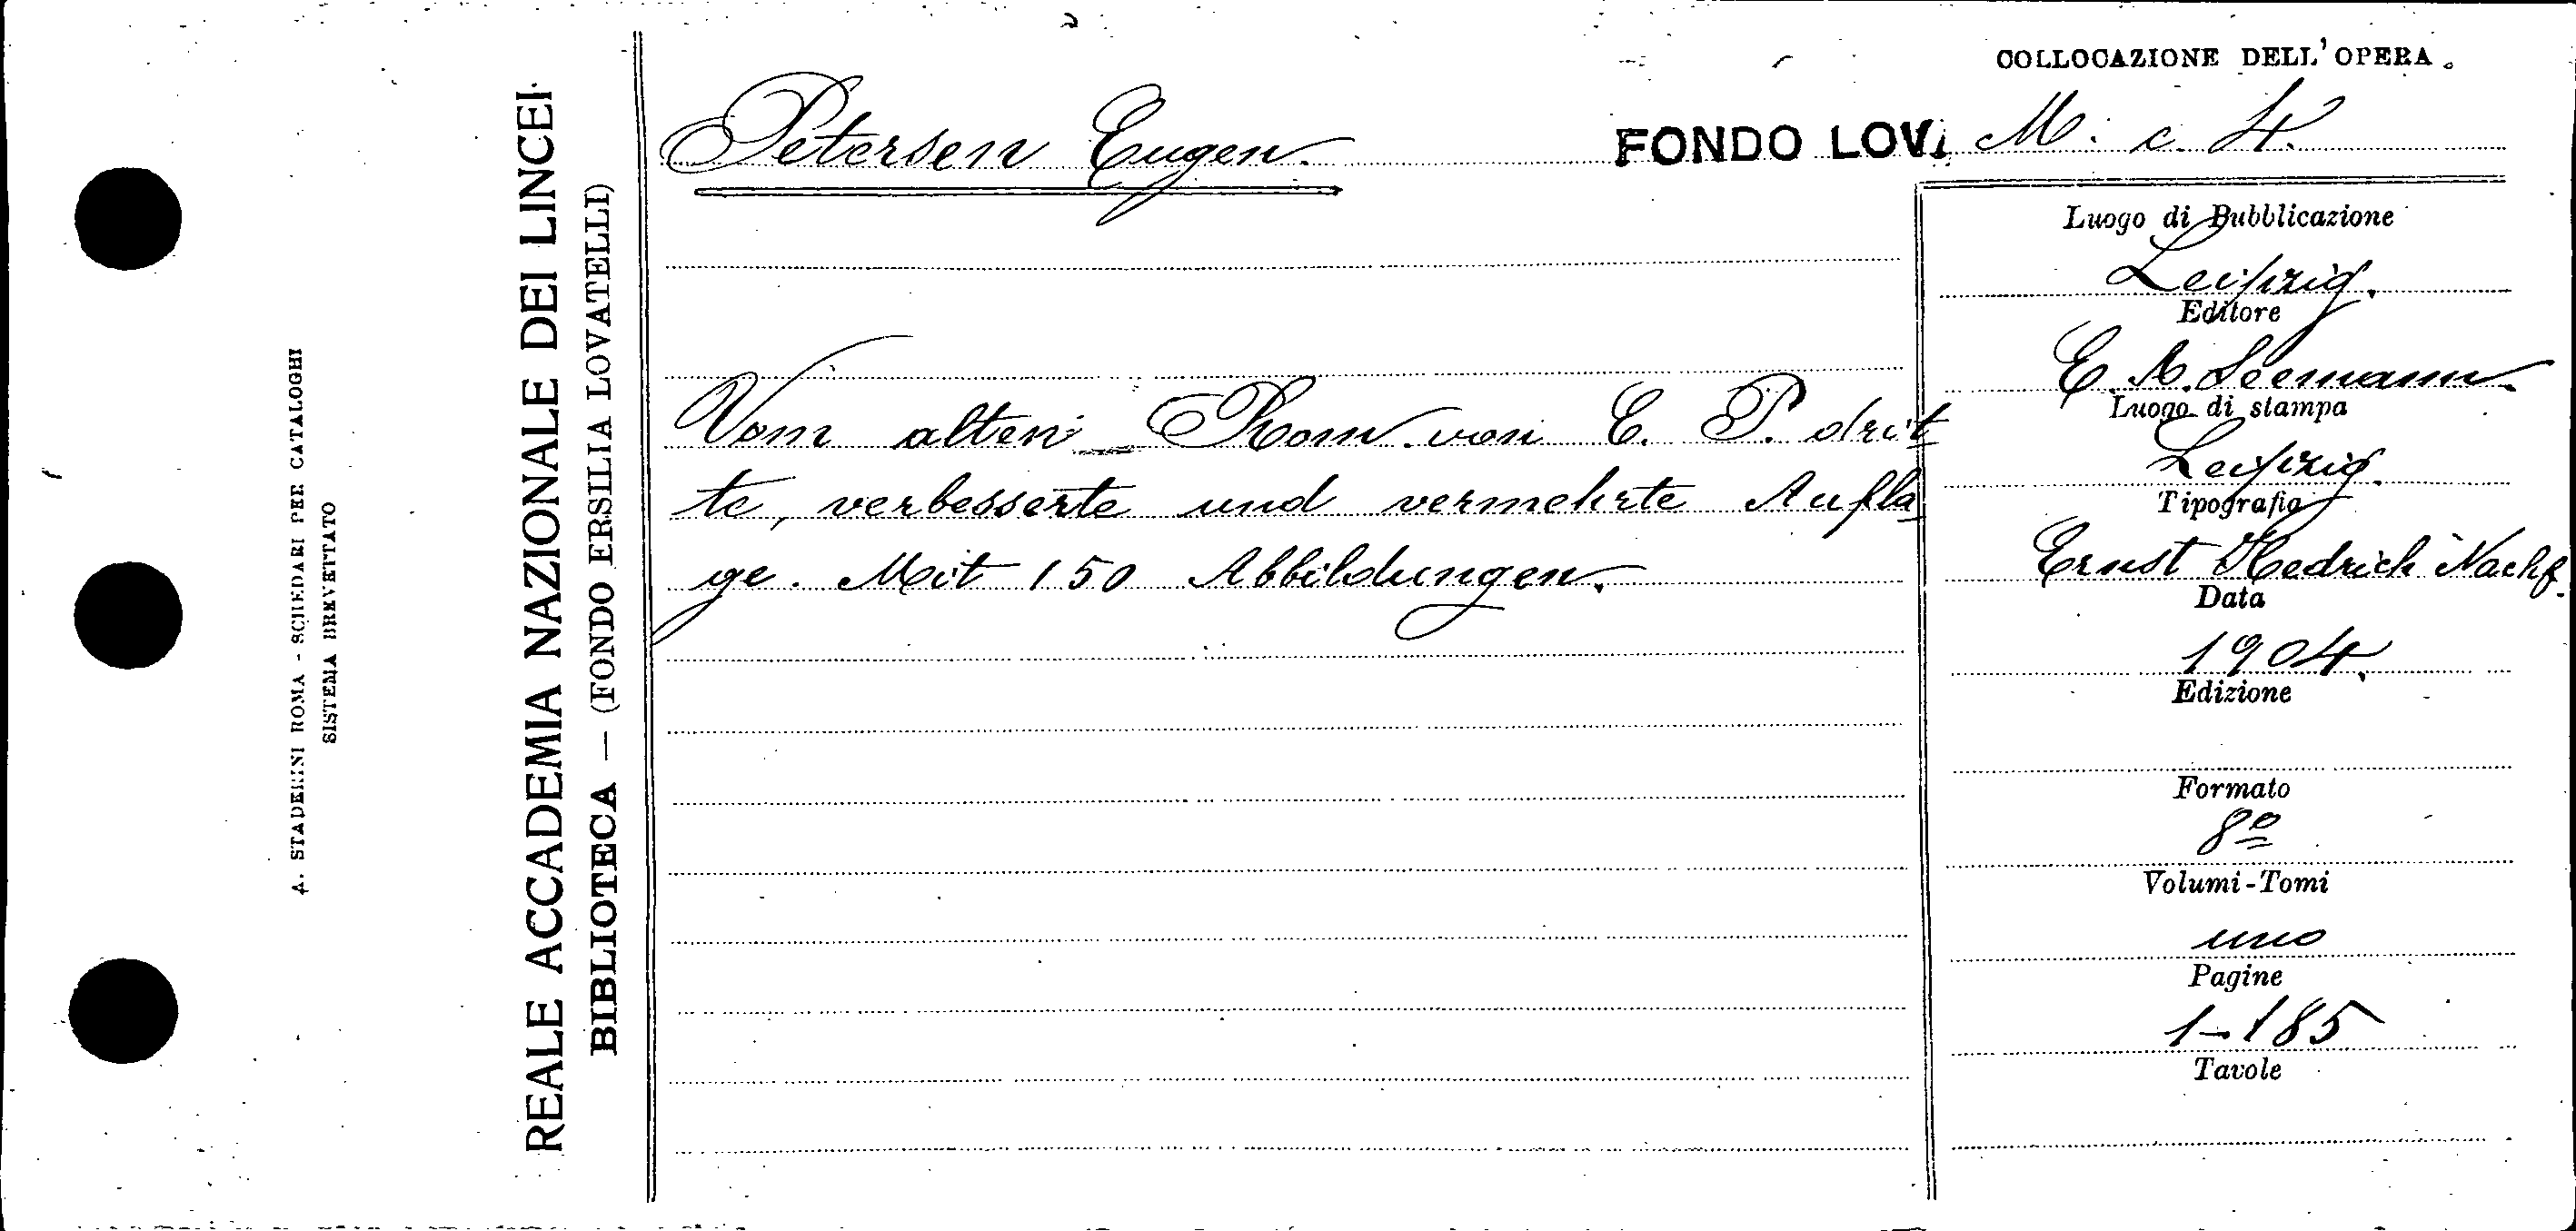 A. STADERINI ROMA - SCHEDARI PER CATALOGHI
SISTEMA BREVETTATO
REALE ACCADEMIA NAZIONALE DEI LINCEI
BIBLIOTECA — (FONDO ERSILIA LOVATELLI)
COLLOCAZIONE DELL'OPERA.
Petersen Eugen.
FONDO LOV. M. c. 4.
Vom alten Rom von E. P. drit
te, verbesserte und vermehrte Aufla
ge. Mit 150 Abbildungen.
Luogo di Pubblicazione
Leipzig.
Editore
E. A. Seemann.
Luogo di stampa
Leipzig.
Tipografia
Ernst Hedrich Nachf.
Data
1904.
Edizione
Formato
8º
Volumi-Tomi
uno
Pagine
1-185
Tavole